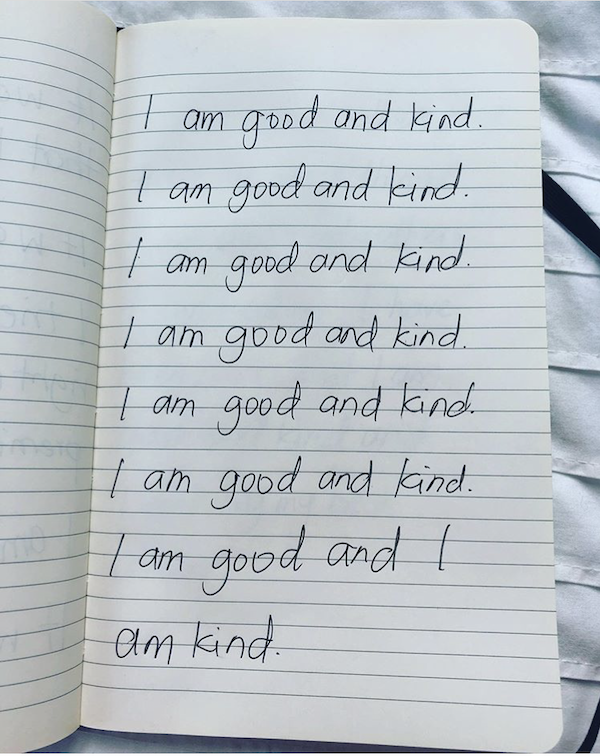 I am good and kind.
I am good and kind.
I am good and kind.
I am good and kind.
I am good and kind.
I am good and kind.
I am good and I
am kind.